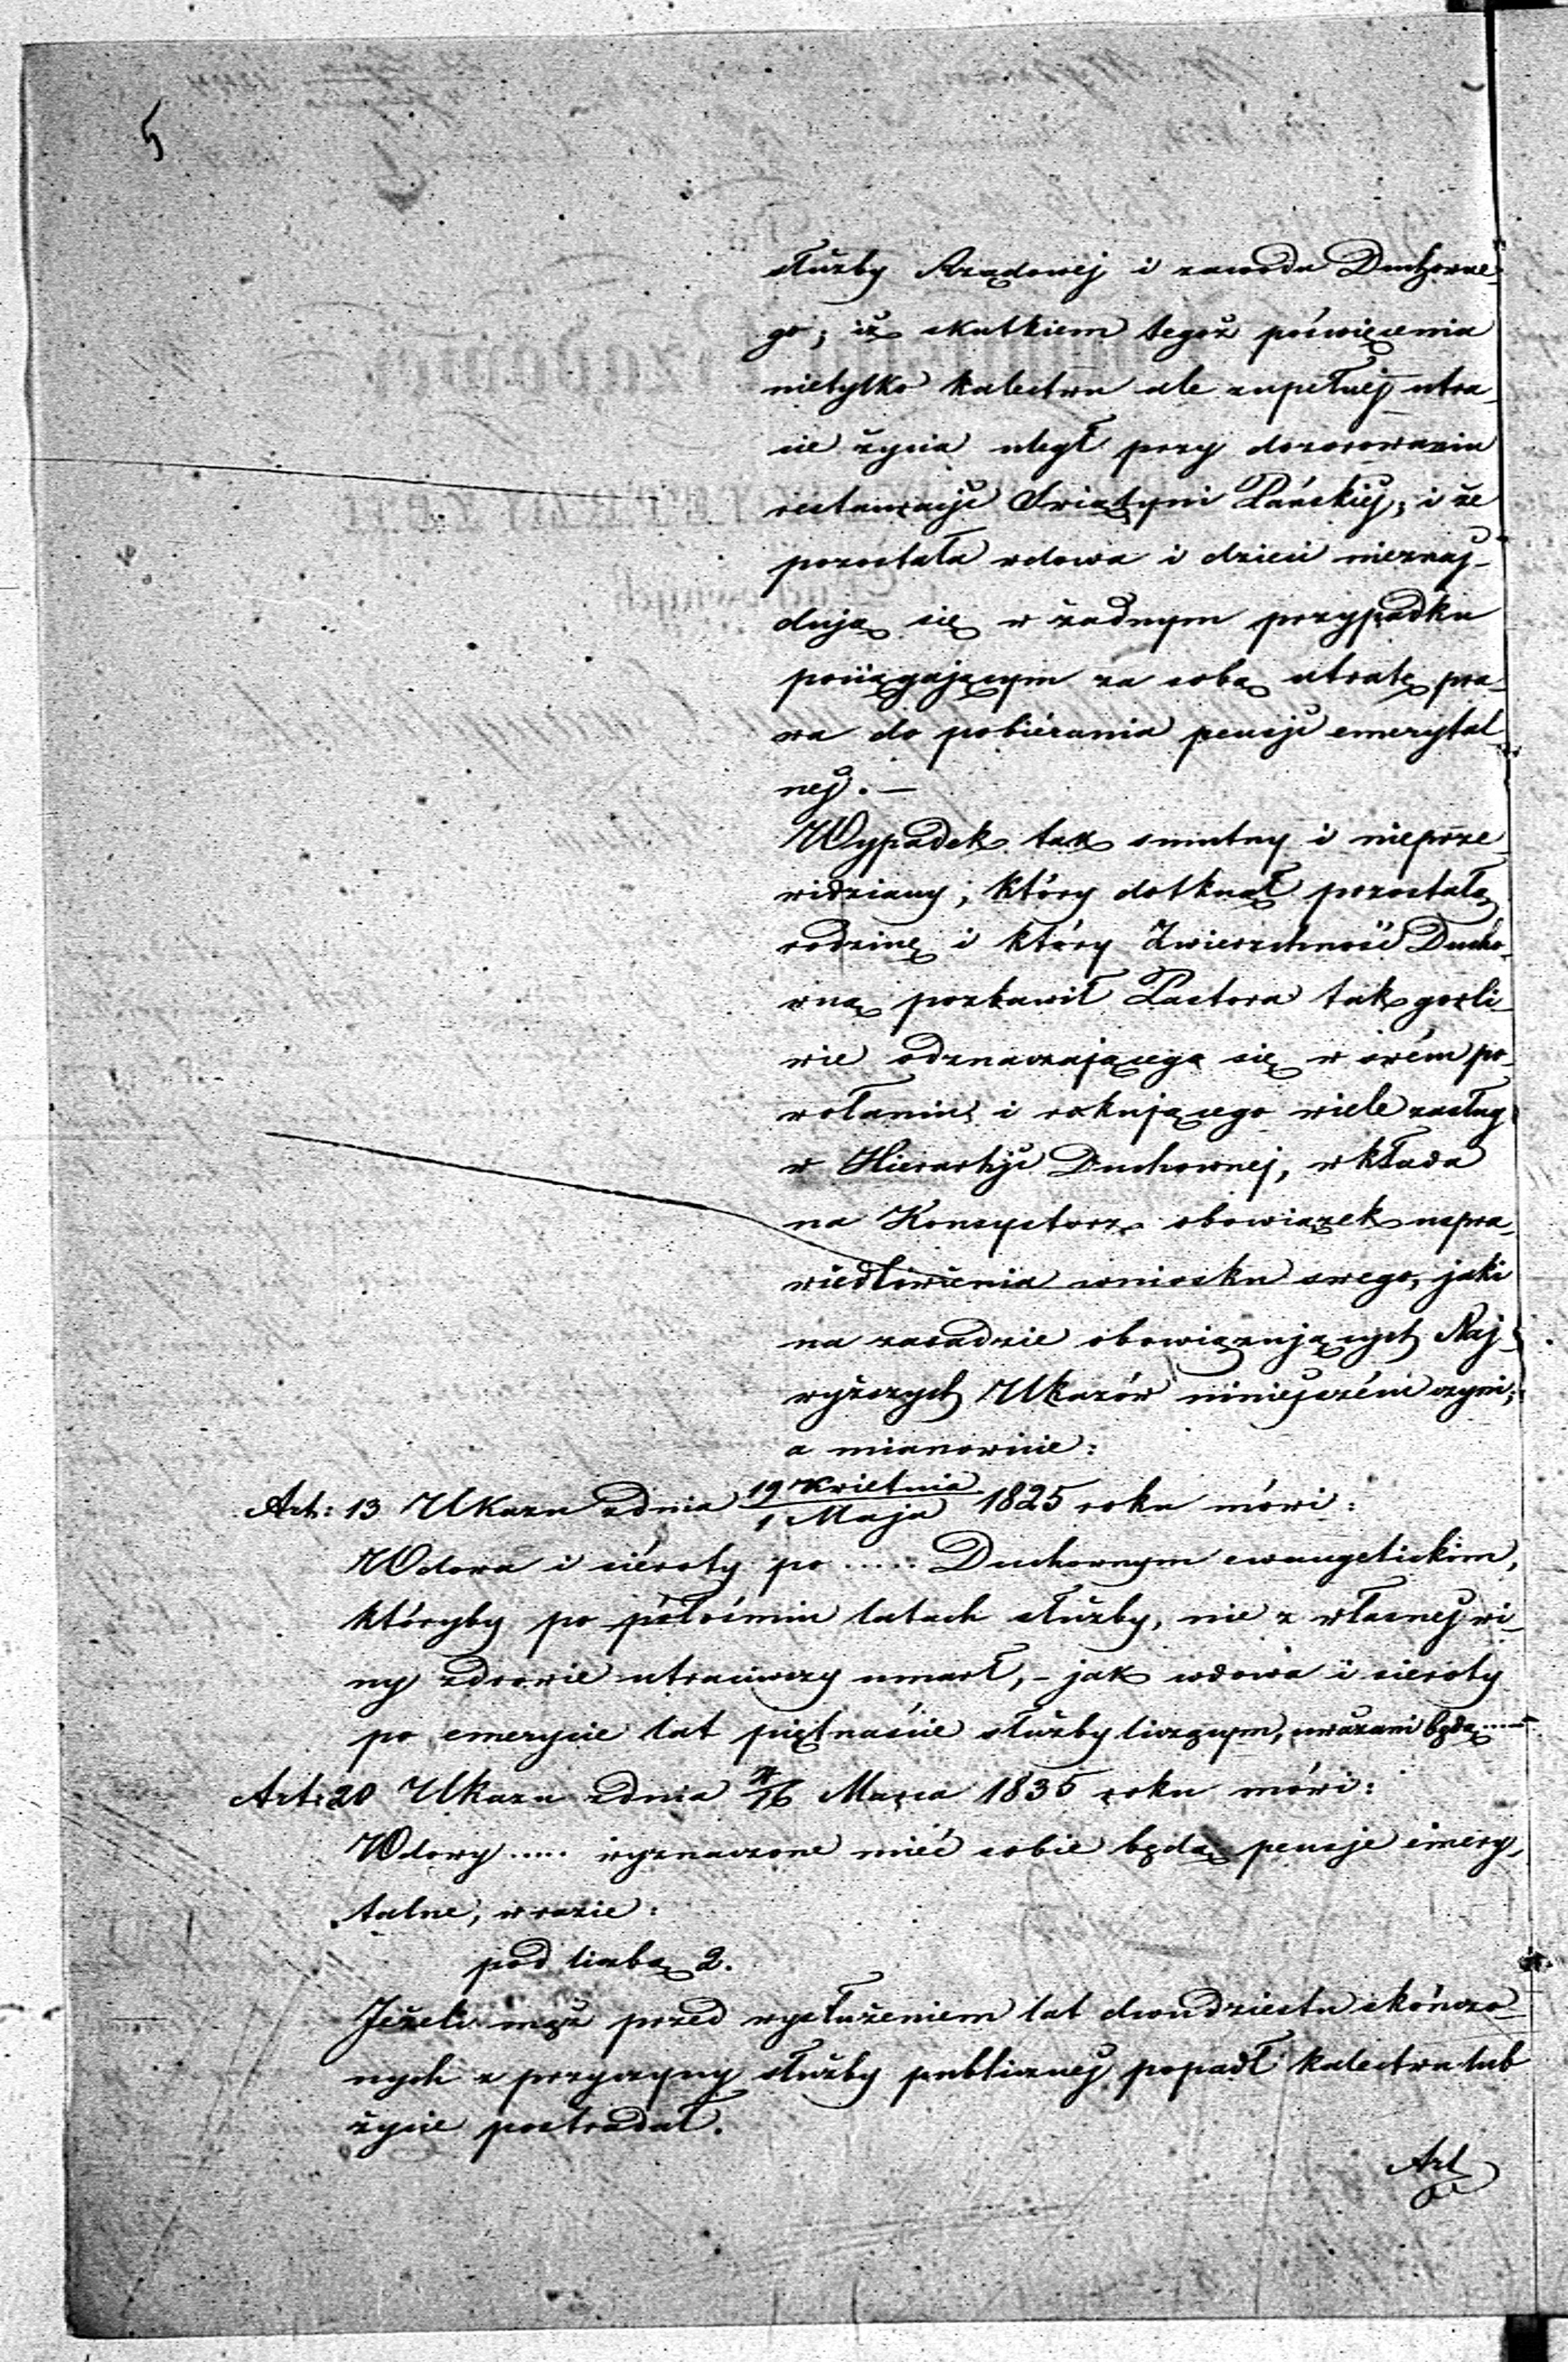 5
służby Rządowej i zawodu Duchowne-
go; iż skutkiem tegoż poświęcenia
nietylko kalectwu ale zupełnéj utra-
cie życia uległ przy dozorowaniu
restauracyi Swiątyni Pańskiéj; i że
pozostała wdowa i dzieci nieznaj-
dują się w żadnym przypadku
pociągającym za sobą utratę pra-
wa do pobiérania pensji emerytal-
néj. —
Wypadek tak smutny i nieprze-
widziany; który dotknął pozostałą
rodzinę i który Zwierzchność Ducho-
wną pozbawił Pastora tak gorli-
wie odznaczającego się w swém po-
wołaniu, i rokującego wiele zasług
w Hierarchji Duchownej, wkłada
na Konsystorz obowiązek uspra-
wiedliwienia wniosku swego, jaki
na zasadzie obowiązujących Naj-
wyższych Ukazów niniejszém czyni;
a mianowicie:
Art: 13 Ukazu z dnia 19 Kwietnia / 1 Maja 1825 roku mówi:
Wdowa i siéroty po ..... Duchownym ewangelickim,
któryby po półośmiu latach służby, nie z własnej wi-
ny zdrowie utraciwszy umarł, - jak wdowa i sieroty
po emerycie lat piętnaście służby liczącym, uważani będą .....
Art: 20 Ukazu z dnia 4/16 Marca 1835 roku mówi:
Wdowy ..... wyznaczone mieć sobie będą pensje emery-
talne, w razie:
pod liczbą 2.
Jeżeli mąż przed wysłużeniem lat dwudziestu skończo-
nych z przyczyny służby publicznéj popadł kalectwu lub
życie postradał.
Art